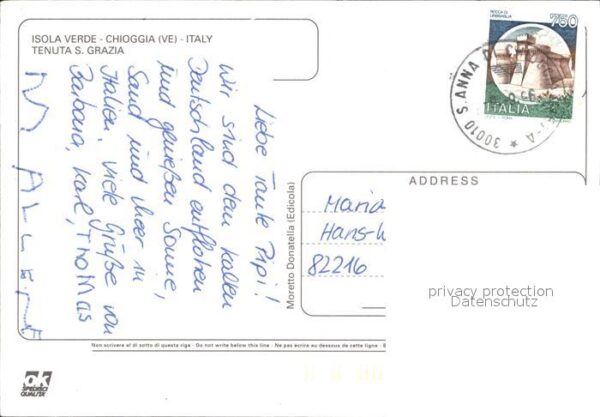 ISOLA VERDE - CHIOGGIA (VE) - ITALY
TENUTA S. GRAZIA
Liebe Tante Pipi!
Wir sind dem kalten
Deutschland entflohen
und genießen Sonne,
Sand und Meer in
Italien. Viele Grüße von
Barbara, Karl, THOMAS
ROCCA DI
URBISAGLIA
750
ITALIA
30010 S. ANNA D
Moretto Donatella (Edicola)
ADDRESS
Maria
Hans-
82216
privacy protection
Datenschutz
Non scrivere al di sotto di questa riga - Do not write below this line - Ne pas écrire au dessous de cette ligne -
ok
SPEDISCI
QUALI5K